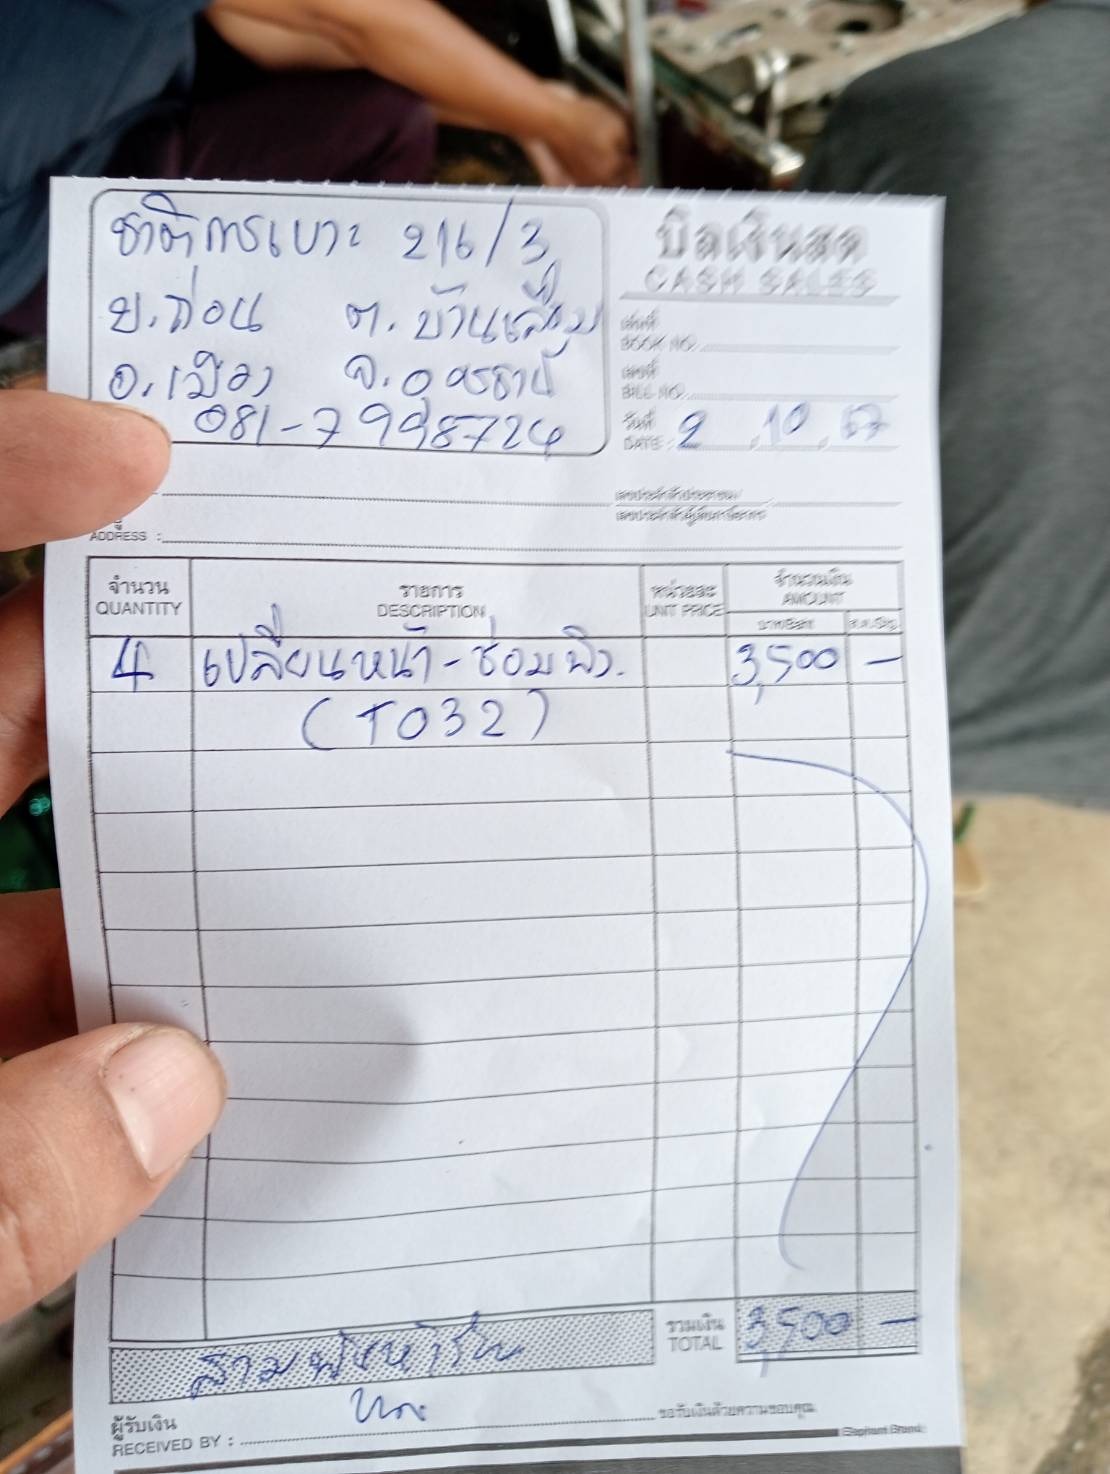 ชาติการเบาะ 216/3
บ.ก่อน ต.บ้านเลื่อม
อ.เมือง จ.อุดรธานี
081-7998724
บิลเงินสด
CASH SALES
เล่มที่
BOOK NO.
เลขที่
BILL NO.
วันที่
DATE : 2 . 10 . 67
เลขประจำตัวประชาชน/
เลขประจำตัวผู้เสียภาษีอากร
ADDRESS :
จำนวน รายการ หน่วยละ จำนวนเงิน
QUANTITY DESCRIPTION UNIT PRICE AMOUNT
บาท/Baht ส.ต./Stg.
4 เปลี่ยนหน้า-ซ่อมพิง. 3,500 –
(T032)
รวมเงิน
TOTAL 3,500 –
สามพันห้าร้อย
ผู้รับเงิน
RECEIVED BY :
ขอรับเงินด้วยความขอบคุณ
Elephant Brand